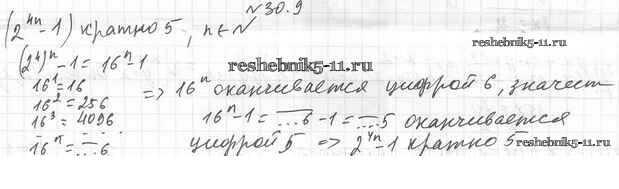 №30.9
(2^{4n} - 1) кратно 5, n ∈ N
(2^4)^n - 1 = 16^n - 1
16^1 = 16
16^2 = 256
16^3 = 4096
16^n = ...6
=> 16^n оканчивается цифрой 6, значит
16^n - 1 = ...6 - 1 = ...5 оканчивается
цифрой 5 => 2^{4n} - 1 кратно 5
reshebnik5-11.ru
reshebnik5-11.ru
reshebnik5-11.ru
reshebnik5-11.ru